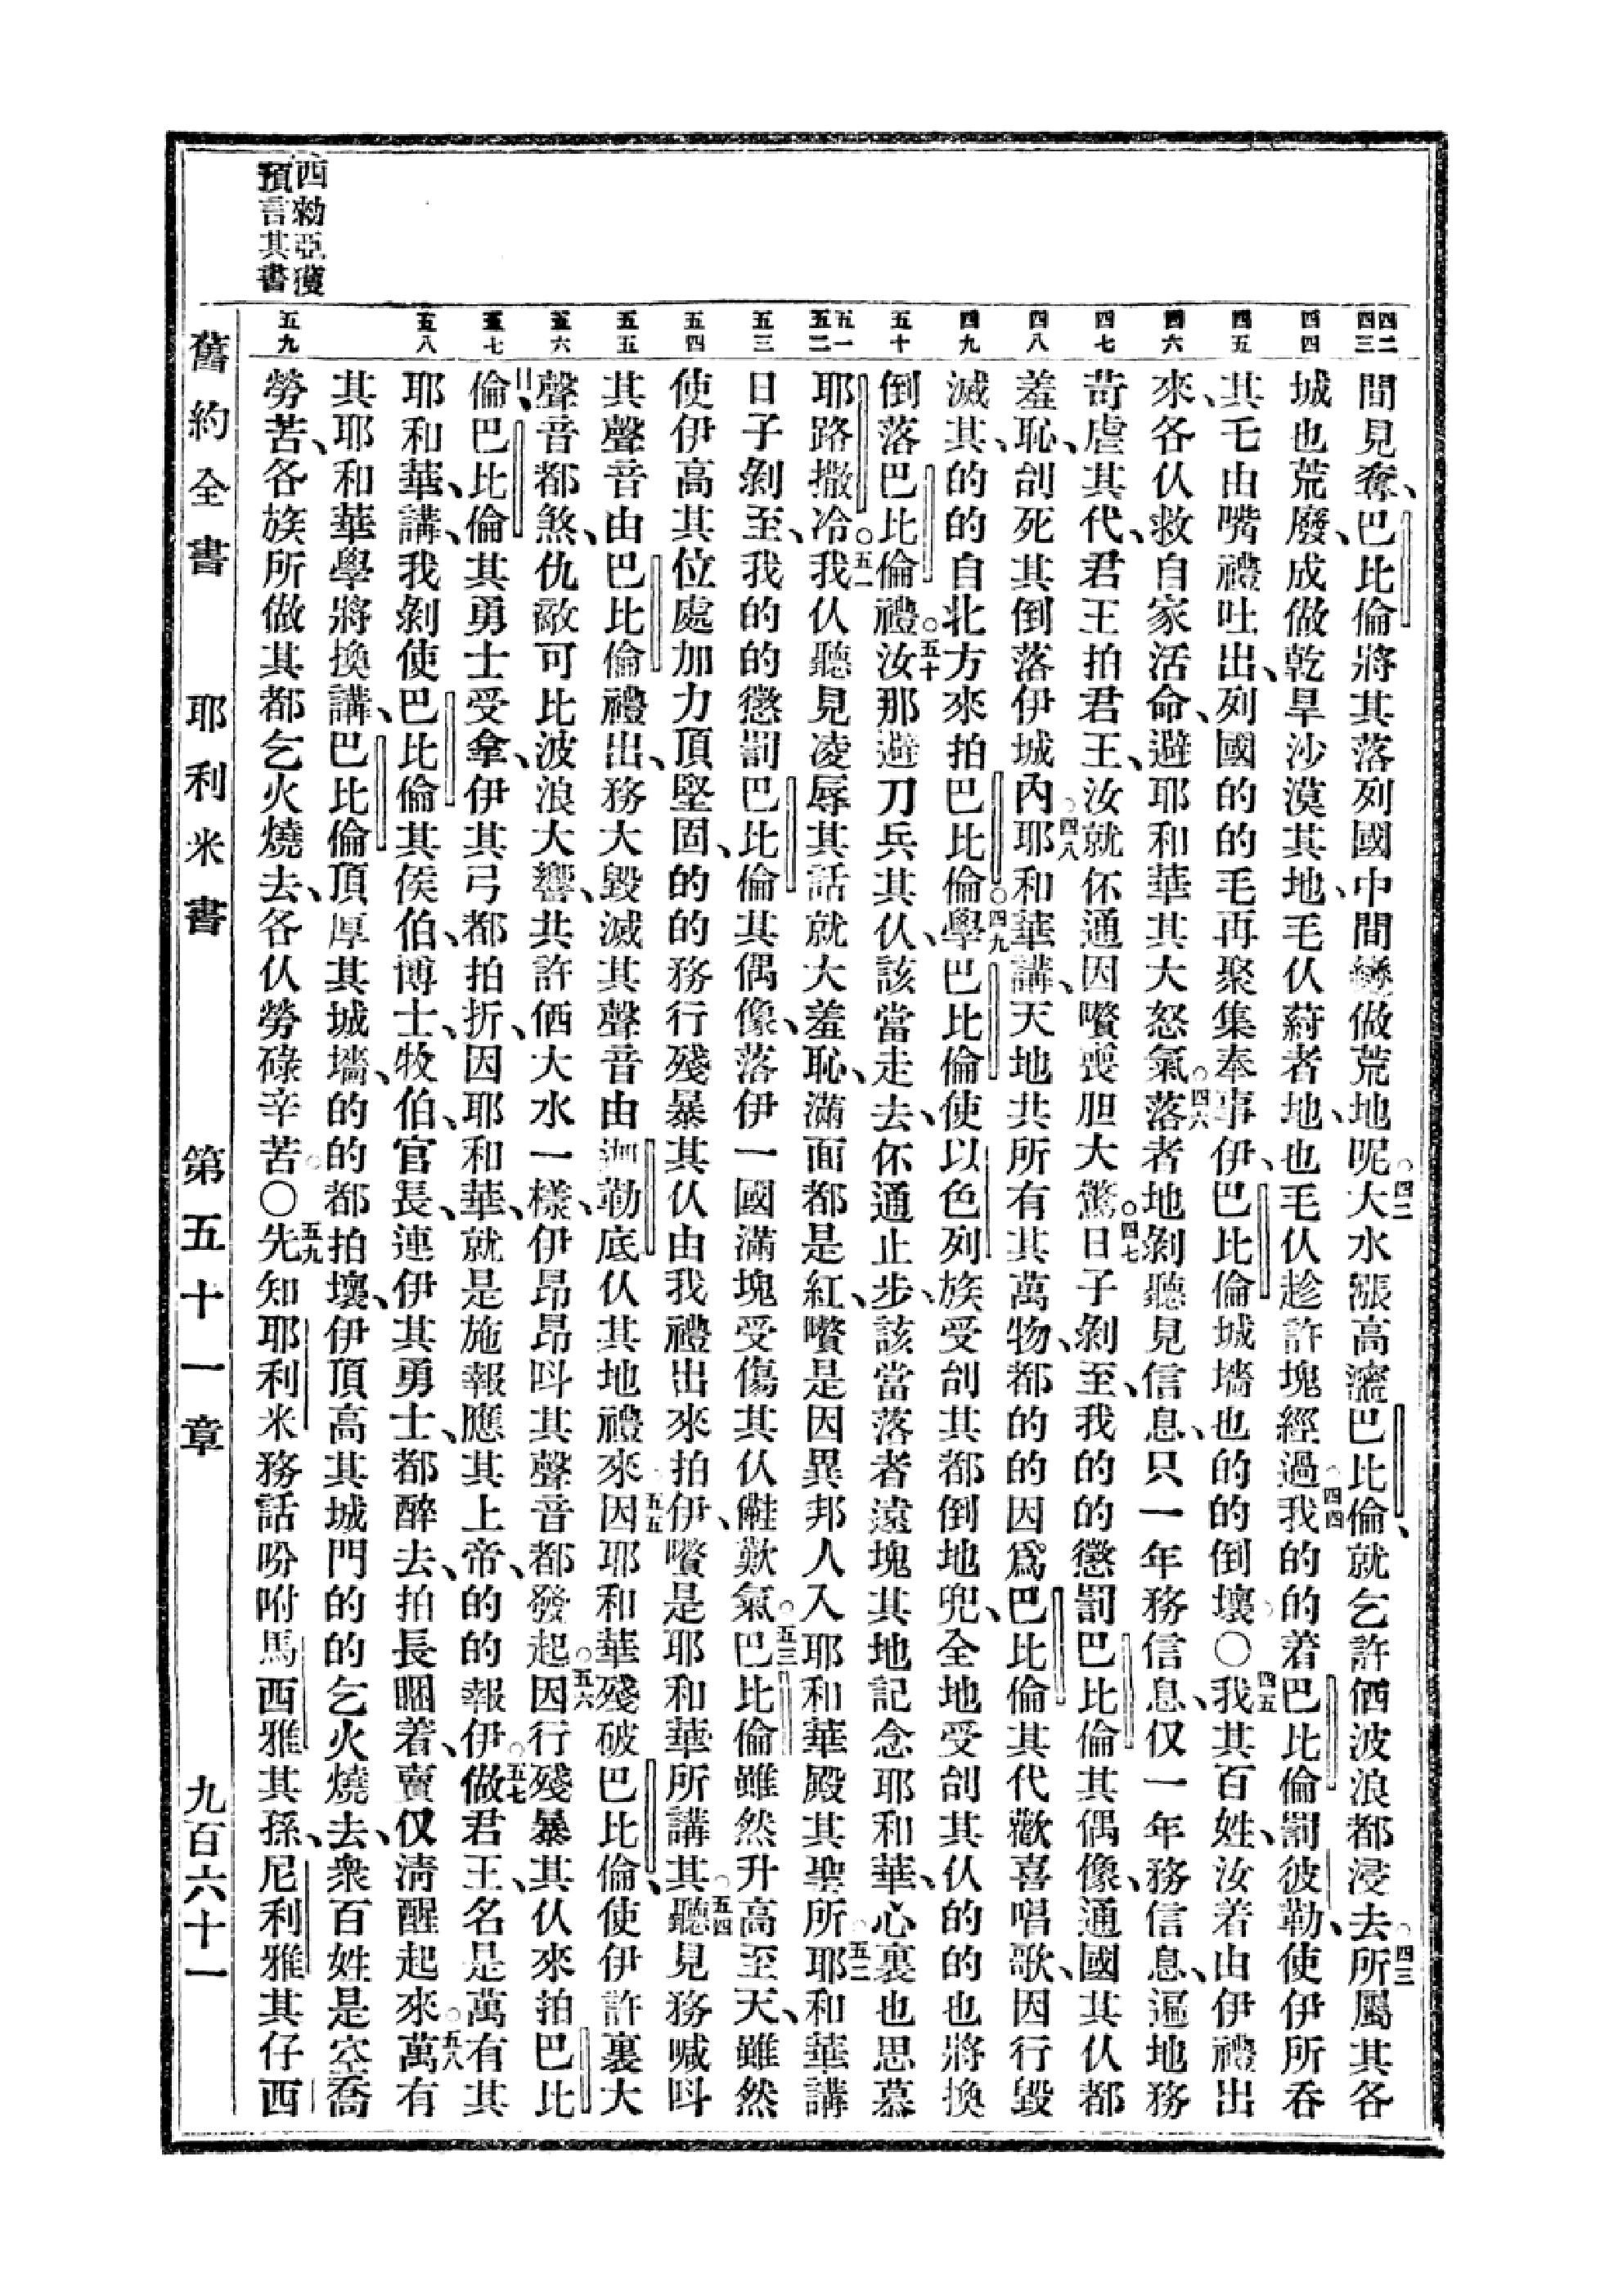 西勑亞獲
預言其書
四二 四三 四四 四五 四六 四七 四八 四九 五十 五一 五二 五三 五四 五五 五六 五七 五八 五九
間見奪、巴比倫將其落列國中間變做荒地呢○四二大水漲高瀊巴比倫、就乞許倕波浪都浸去○四三所屬其各
城也荒廢、成做乾旱沙漠其地、毛仈蒔者地、也毛仈趁許塊經過○四四我的的着巴比倫罰彼勒、使伊所吞
其毛由嘴禮吐出、列國的的毛再聚集奉事伊、巴比倫城墻也的的倒壞○四五我其百姓、汝着由伊禮出
來、各仈救自家活命、避耶和華其大怒氣○四六落者地剝聽見信息、只一年務信息、仅一年務信息、遍地務
苛虐其代、君王拍君王、汝就伓通因嚽喪胆大驚○四七日子剝至、我的的懲罰巴比倫其偶像、通國其仈都
羞恥、刣死其倒落伊城內○四八耶和華講、天地共所有其萬物、都的的因爲巴比倫其代歡喜唱歌、因行毀
滅其、的的自北方來拍巴比倫○四九學巴比倫使以色列族受刣其都倒地兜、全地受刣其仈的的也將換
倒落巴比倫禮○五十汝那避刀兵其仈、該當走去、伓通止步、該當落者遠塊其地記念耶和華、心裏也思慕
耶路撒冷○五一我仈聽見凌辱其話就大羞恥、滿面都是紅、嚽是因異邦人入耶和華殿其聖所○五二耶和華講
日子剝至、我的的懲罰巴比倫其偶像、落伊一國滿塊受傷其仈㗂歎氣○五三巴比倫雖然升高至天、雖然
使伊高其位處加力頂堅固、的的務行殘暴其仈由我禮出來拍伊、嚽是耶和華所講其○五四聽見務喊呌
其聲音由巴比倫禮出、務大毀滅其聲音由迦勒底仈其地禮來○五五因耶和華殘破巴比倫、使伊許裏大
聲音都煞、仇敵可比波浪大響、共許倕大水一樣、伊昂昂呌其聲音都發起○五六因行殘暴其仈來拍巴比
倫、巴比倫其勇士受拿、伊其弓都拍折、因耶和華、就是施報應其上帝、的的報伊○五七做君王、名是萬有其
耶和華、講、我剝使巴比倫其侯伯、博士、牧伯、官長、連伊其勇士、都醉去、拍長睏着、賣仅淸醒起來○五八萬有
其耶和華學將換講、巴比倫頂厚其城墻、的的都拍壞、伊頂高其城門的的乞火燒去、衆百姓是空喬
勞苦、各族所做其都乞火燒去、各仈勞碌辛苦○五九先知耶利米務話吩咐馬西雅其孫、尼利雅其仔西
舊約全書 耶利米書 第五十一章 九百六十一